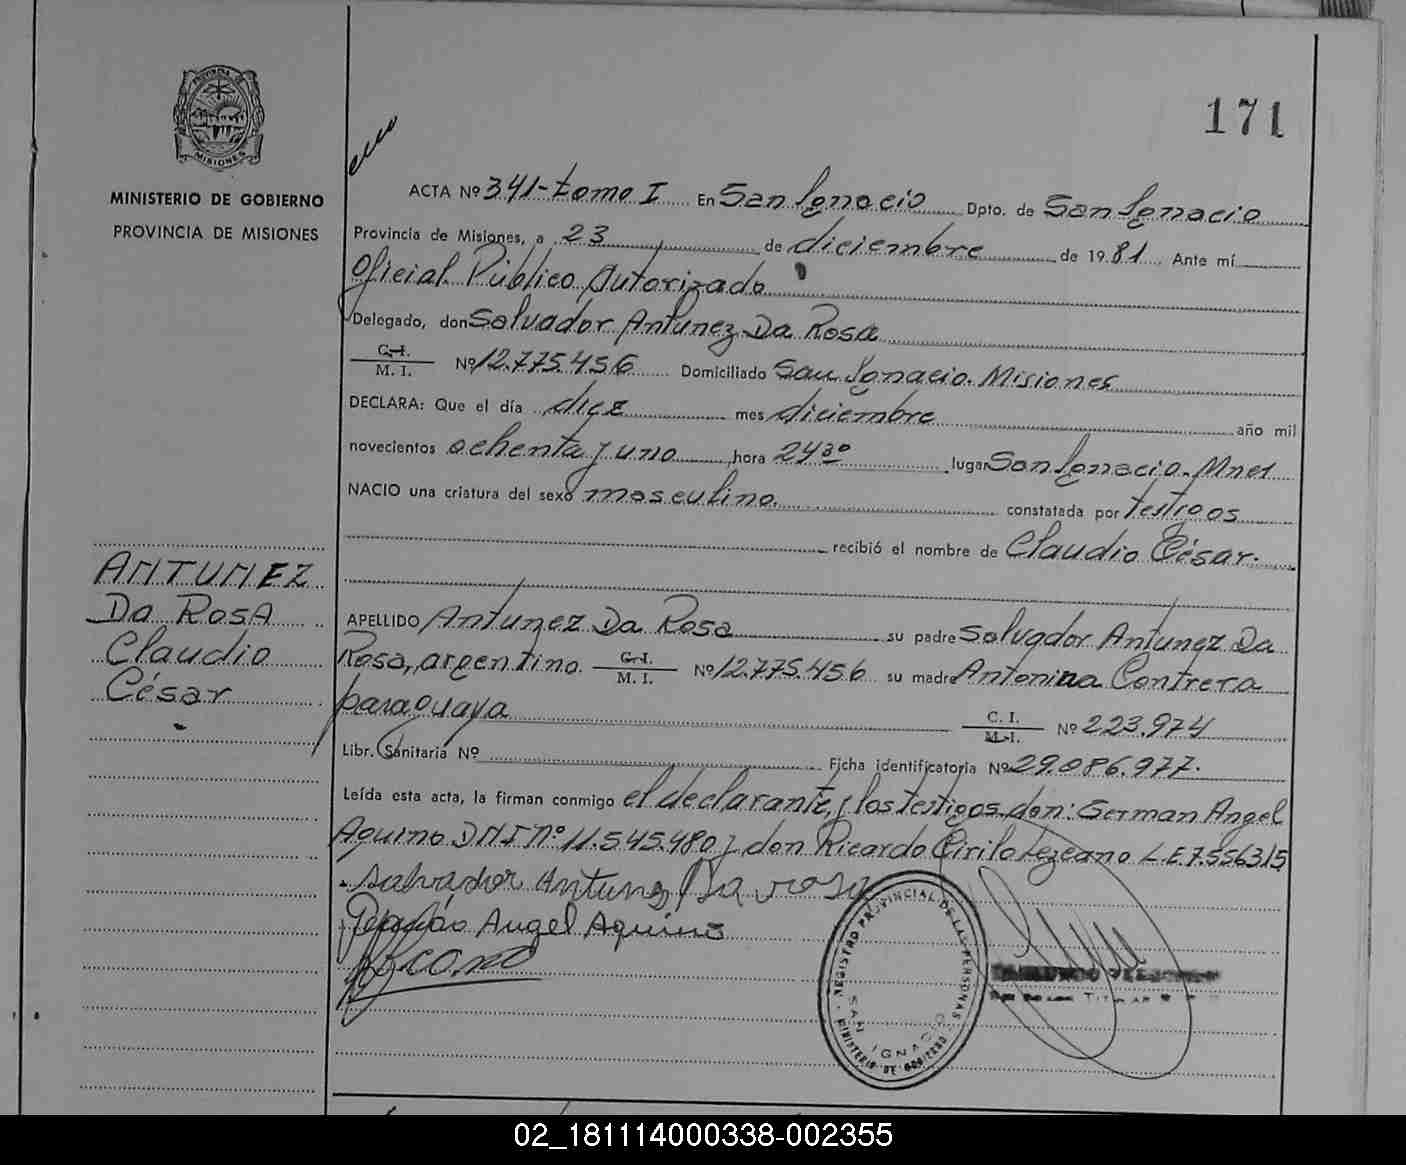 171
PROVINCIA DE
MISIONES
MINISTERIO DE GOBIERNO
PROVINCIA DE MISIONES
ACTA Nº 341-tomo I En San Ignacio Dpto. de San Ignacio
Provincia de Misiones, a 23 de diciembre de 1981 Ante mí
Oficial Público Autorizado
Delegado, don Salvador Antunez Da Rosa
C. I.
M. I. Nº 12.775.456 Domiciliado San Ignacio. Misiones
DECLARA: Que el día diez mes diciembre año mil
novecientos ochenta y uno hora 24 30 lugar San Ignacio. Mnes
NACIO una criatura del sexo masculino. constatada por
recibió el nombre de Claudio César.
ANTUNEZ
Da ROSA
Claudio
César
APELLIDO Antunez Da Rosa su padre Salvador Antunez Da
Rosa, argentino. C. I.
M. I. Nº 12.775.456 su madre Antonina Contrera
paraguaya C. I.
M. I. Nº 223.974
Libr. Sanitaria Nº Ficha identificatoria Nº 29.086.977.
Leída esta acta, la firman conmigo el declarante, y los testigos don: German Angel
Aquino DNI Nº 11.545.480 y don Ricardo Cirilo Lezcano L.E 7.556315
Salvador Antunez Da rosa
Angel Aquino
REGISTRO PROVINCIAL DE LAS PERSONAS
MINISTERIO DE GOBIERNO
SAN IGNACIO
TITULAR
02_181114000338-002355